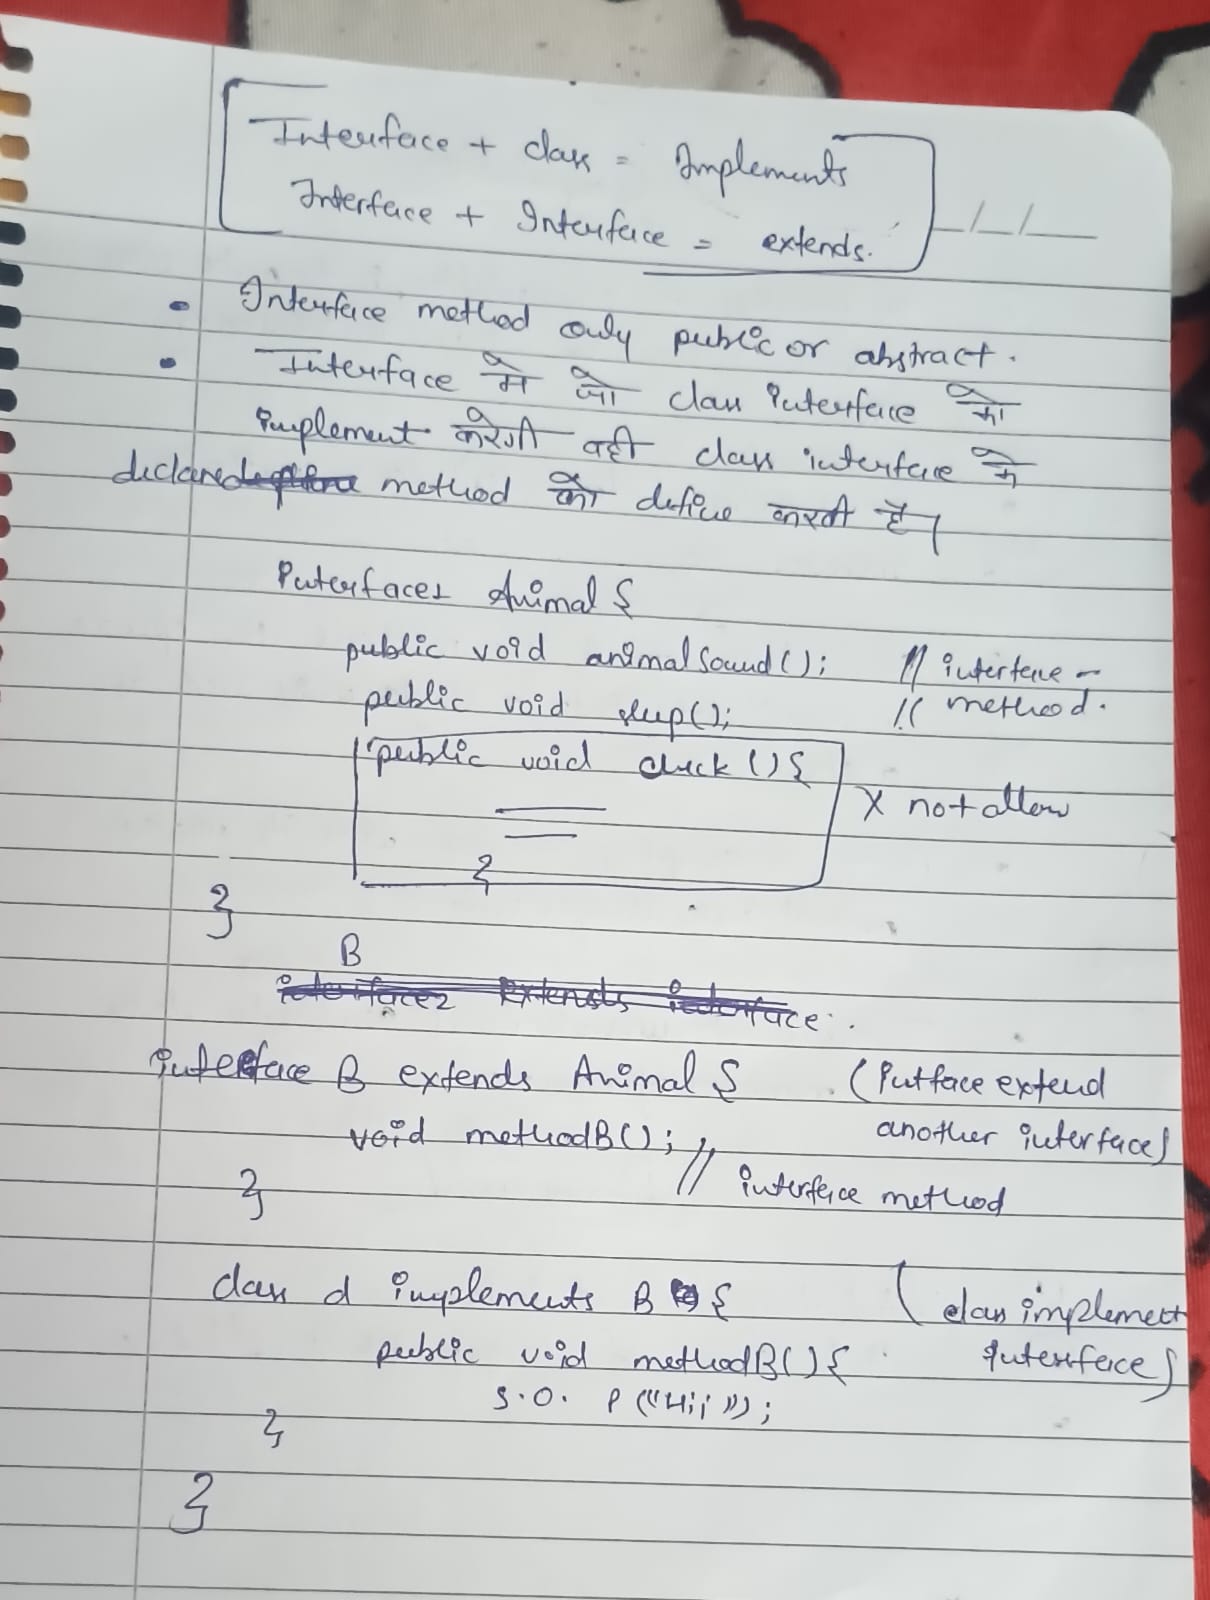 Interface + class = Implements
Interface + Interface = extends.
Interface method only public or abstract.
Interface मे जो class interface को
implement करेगी वही class interface मे
declared method को define करती है।
Interfaces Animal {
public void animalSound(); // interface
public void sleep(); // method.
public void check () {
X not allow
}
}
B
interface2 Extends interface.
interface B extends Animal { (Intface extend
void methodB(); another interface)
// interface method
}
class d implements B { (class implement
public void methodB() { interface)
S.O. P ("Hii");
}
}